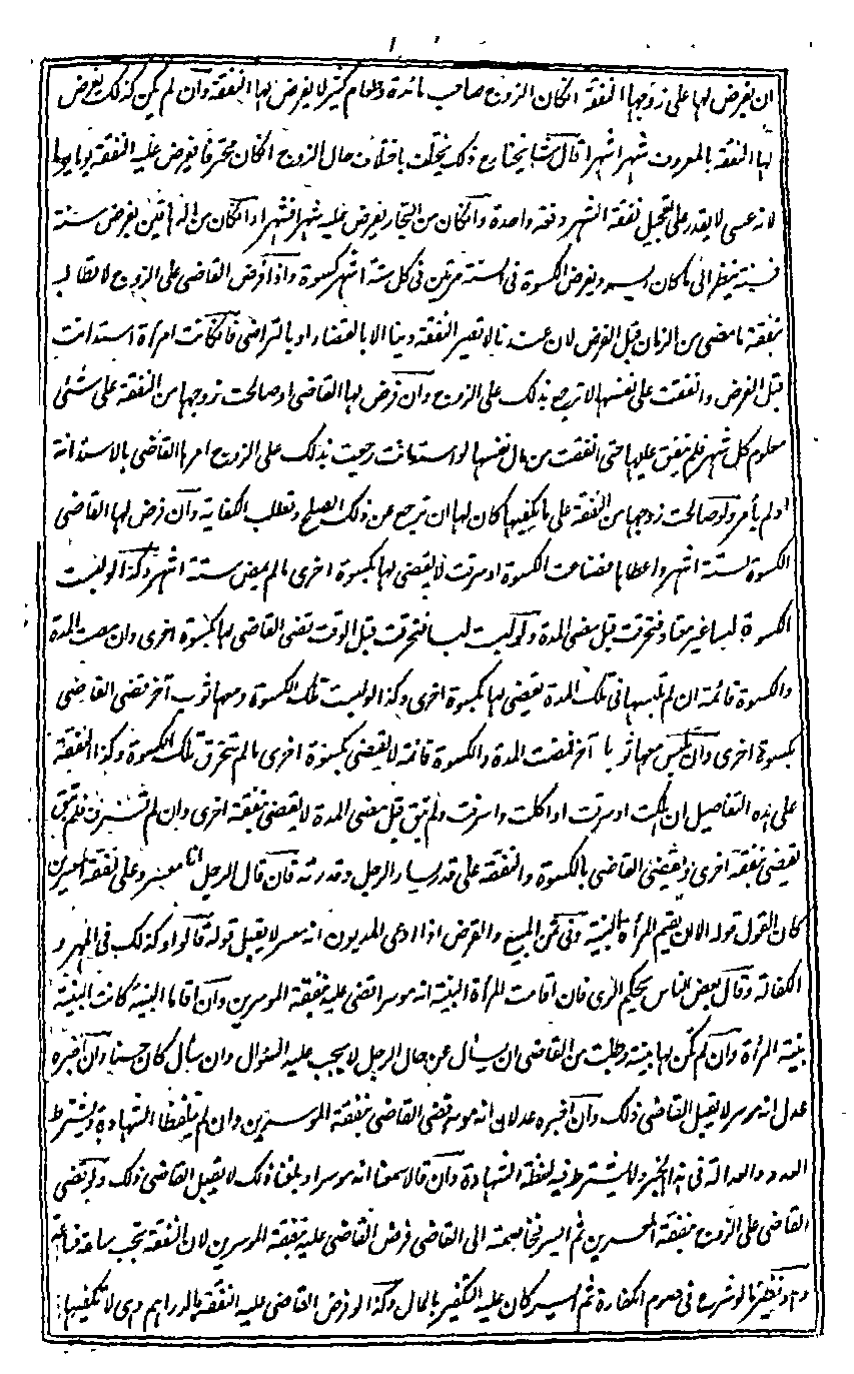 ان يفرض لها على زوجها النفقة انكان الزوج صاحب مائدة وطعام كثير لا يفرض لها النفقة وان لم يكن كذلك يفرض
لها النفقة بالمعروف شهرا شهرا قال مشايخنا رح ذلك يختلف باختلاف حال الزوج انكان محترفا يفرض عليه النفقة يوما يوما
لانه عسى لا يقدر على تعجيل نفقة الشهر دفعة واحدة وانكان من التجار يفرض عليه شهرا فشهرا وانكان من الدهاقين يفرض سنة
فسنة ينظر الى ما كان ايسر ويفرض الكسوة فى السنة مرتين فى كل ستة اشهر كسوة واذا فرض القاضى على الزوج لا يطالب
بنفقة ما مضى من الزمان قبل الفرض لان عندنا لا تصير النفقة دينا الا بالقضاء او بالتراضى فان كانت امرأة استدانت
قبل الفرض وانفقت على نفسها لا ترجع بذلك على الزوج وان فرض لها القاضى او صالحت زوجها من النفقة على شئ
معلوم كل شهر فلم ينفق عليها حتى انفقت من مال نفسها او استدانت رجعت بذلك على الزوج امرها القاضى بالاستدانة
او لم يأمر ولو صالحت زوجها من النفقة على ما لا يكفيها كان لها ان ترجع عن ذلك الصلح وتطلب الكفاية وان فرض لها القاضى
الكسوة لستة اشهر واعطاها فضاعت الكسوة او سرقت لا يقضى لها بكسوة اخرى ما لم يمض ستة اشهر وكذا لو لبست
الكسوة لبسا غير معتاد فتخرقت قبل مضى المدة ولو لبست لبسا فتخرقت قبل الوقت تقضى القاضى لها بكسوة اخرى وان مضت المدة
والكسوة قائمة ان لم تلبسها فى تلك المدة يقضى لها بكسوة اخرى وكذا لو لبست تلك الكسوة ومعها ثوب آخر تقضى القاضى
بكسوة اخرى وان لم تلبس معها ثوبا آخر فمضت المدة والكسوة قائمة لا يقضى بكسوة اخرى ما لم تتخرق تلك الكسوة وكذا النفقة
على هذه التفاصيل ان هلكت او سرقت او اكلت واسرفت ولم تبق قبل مضى المدة لا يقضى بنفقة اخرى وان لم تسرف فلم تبق
يقضى بنفقة اخرى ويقضى القاضى بالكسوة والنفقة على قدر يسار الرجل وقدرته فان قال الرجل انا معسر وعلى نفقة المعسرين
كان القول قوله الا ان يقيم المرأة البينة وفى ثمن المبيع والقرض اذا ادعى المديون انه معسر لا يقبل قوله قالوا وكذلك فى المهر و
الكفالة وقال بعض الناس يحكم الزى فان اقامت المرأة البينة انه موسر اقضى عليه بنفقة الموسرين وان اقاما البينة كانت البينة
بينة المرأة وان لم تكن لها بينة وطلبت من القاضى ان يسأل عن حال الرجل لا يجب عليه السؤال وان سأل كان حسنا وان اخبره
عدل انه موسر لا يقبل القاضى ذلك وان اخبره عدلان انه موسر تقضى القاضى بنفقة الموسرين وان لم يتلفظا الشهادة ويشترط
العدد والعدالة فى هذا الخبر ولا يشترط فيه لفظة الشهادة وان قالا سمعنا انه موسر او بلغنا ذلك لا يقبل القاضى ذلك ولو تقضى
القاضى على الزوج بنفقة المعسرين ثم ايسر فخاصمته الى القاضى فرض القاضى عليه بنفقة الموسرين لان النفقة تجب ساعة فساعة
ونظيره ما لو شرع فى صوم الكفارة ثم ايسر كان عليه التكفير بالمال وكذا لو فرض القاضى عليه النفقة بالدراهم وهى لا تكفيها